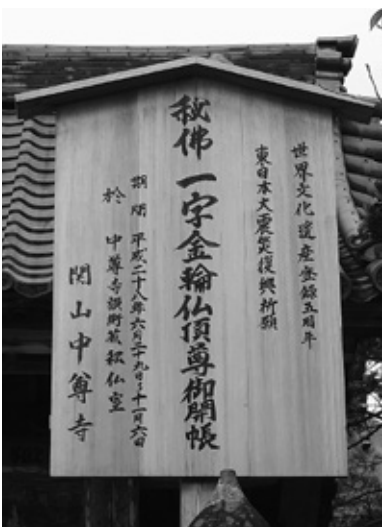 世界文化遺産登録五周年
東日本大震災復興祈願
秘佛 一字金輪仏頂尊御開帳
期間 平成二十八年六月二十九日〜十一月六日
於 中尊寺讃衡蔵秘仏室
関山中尊寺